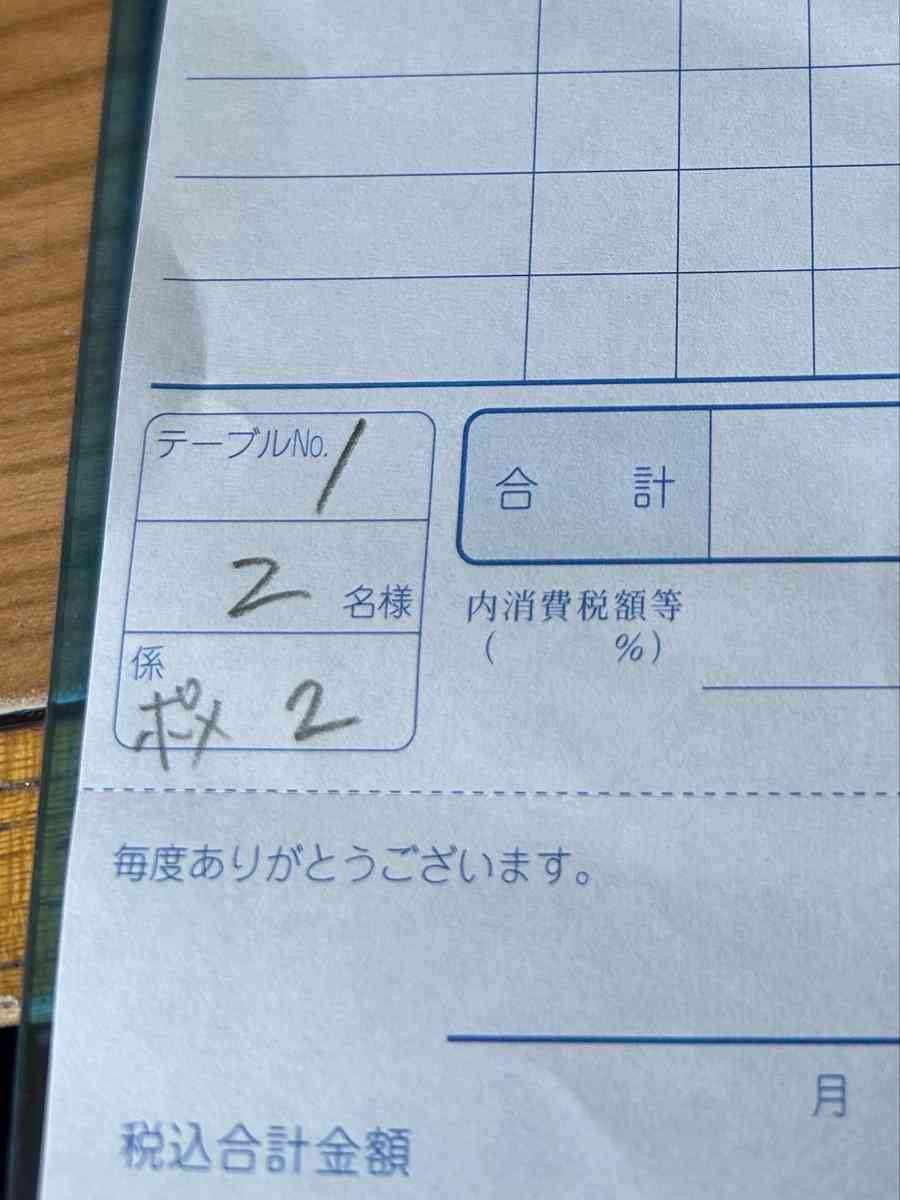 テーブルNo. 1
2 名様
係
ポメ 2
合 計
内消費税額等
( %)
毎度ありがとうございます。
月
税込合計金額